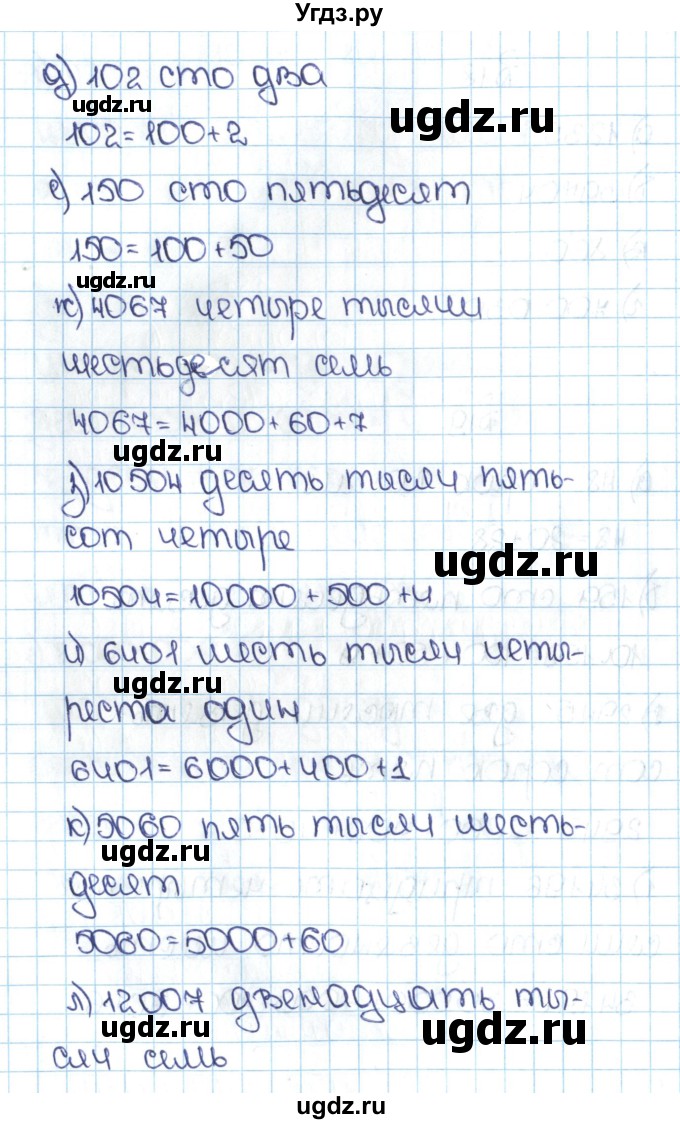 Угдз.ру
д) 102 сто два
ugdz.ru
ugdz.ru
102 = 100 + 2
е) 150 сто пятьдесят
150 = 100 + 50
ugdz.ru
ж) 4067 четыре тысячи
шестьдесят семь
4067 = 4000 + 60 + 7
ugdz.ru
з) 10504 десять тысяч пять-
сот четыре
ugdz.ru
10504 = 10000 + 500 + 4
и) 6401 шесть тысяч четы-
ugdz.ru
реста один
6401 = 6000 + 400 + 1
к) 5060 пять тысяч шесть-
ugdz.ru
ugdz.ru
десят
5060 = 5000 + 60
л) 12007 двенадцать ты-
ugdz.ru
ugdz.ru
сяч семь
ugdz.ru